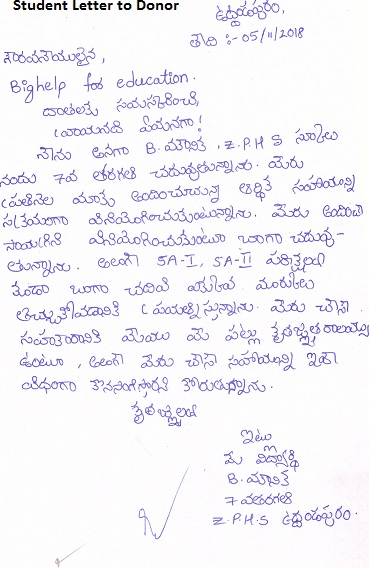 Student Letter to Donor
ఉద్దండపురం,
తేది :- 05/11/2018
గౌరవనీయులైన,
Bighelp for education.
దాతలకు నమస్కరించి,
వ్రాయునది ఏమనగా!
నేను అనగా B. మౌనిక, Z.P.H.S స్కూలు
నందు 7వ తరగతి చదువుతున్నాను. మీరు
ప్రతినెల మాకు అందించుచున్న ఆర్థిక సహాయాన్ని
సక్రమంగా వినియోగించుకుంటున్నాను. మీరు అందించే
సాయాన్ని వినియోగించుకుంటూ బాగా చదువు-
తున్నాను. అలాగే SA-I, SA-II పరీక్షల్లో
కూడా బాగా చదివి ఎక్కువ మార్కులు
తెచ్చుకోవడానికి ప్రయత్నిస్తున్నాను. మీరు చేసే
సహకారానికి మేము మీ పట్ల కృతజ్ఞతరాలమై
ఉంటూ, అలాగే మీరు చేసే సహాయాన్ని ఇదే
విధంగా కొనసాగిస్తారని కోరుతున్నాను.
కృతజ్ఞతలతో
ఇట్లు
మీ విద్యార్థి
B. మౌనిక
7వతరగతి
Z.P.H.S ఉద్దండపురం.